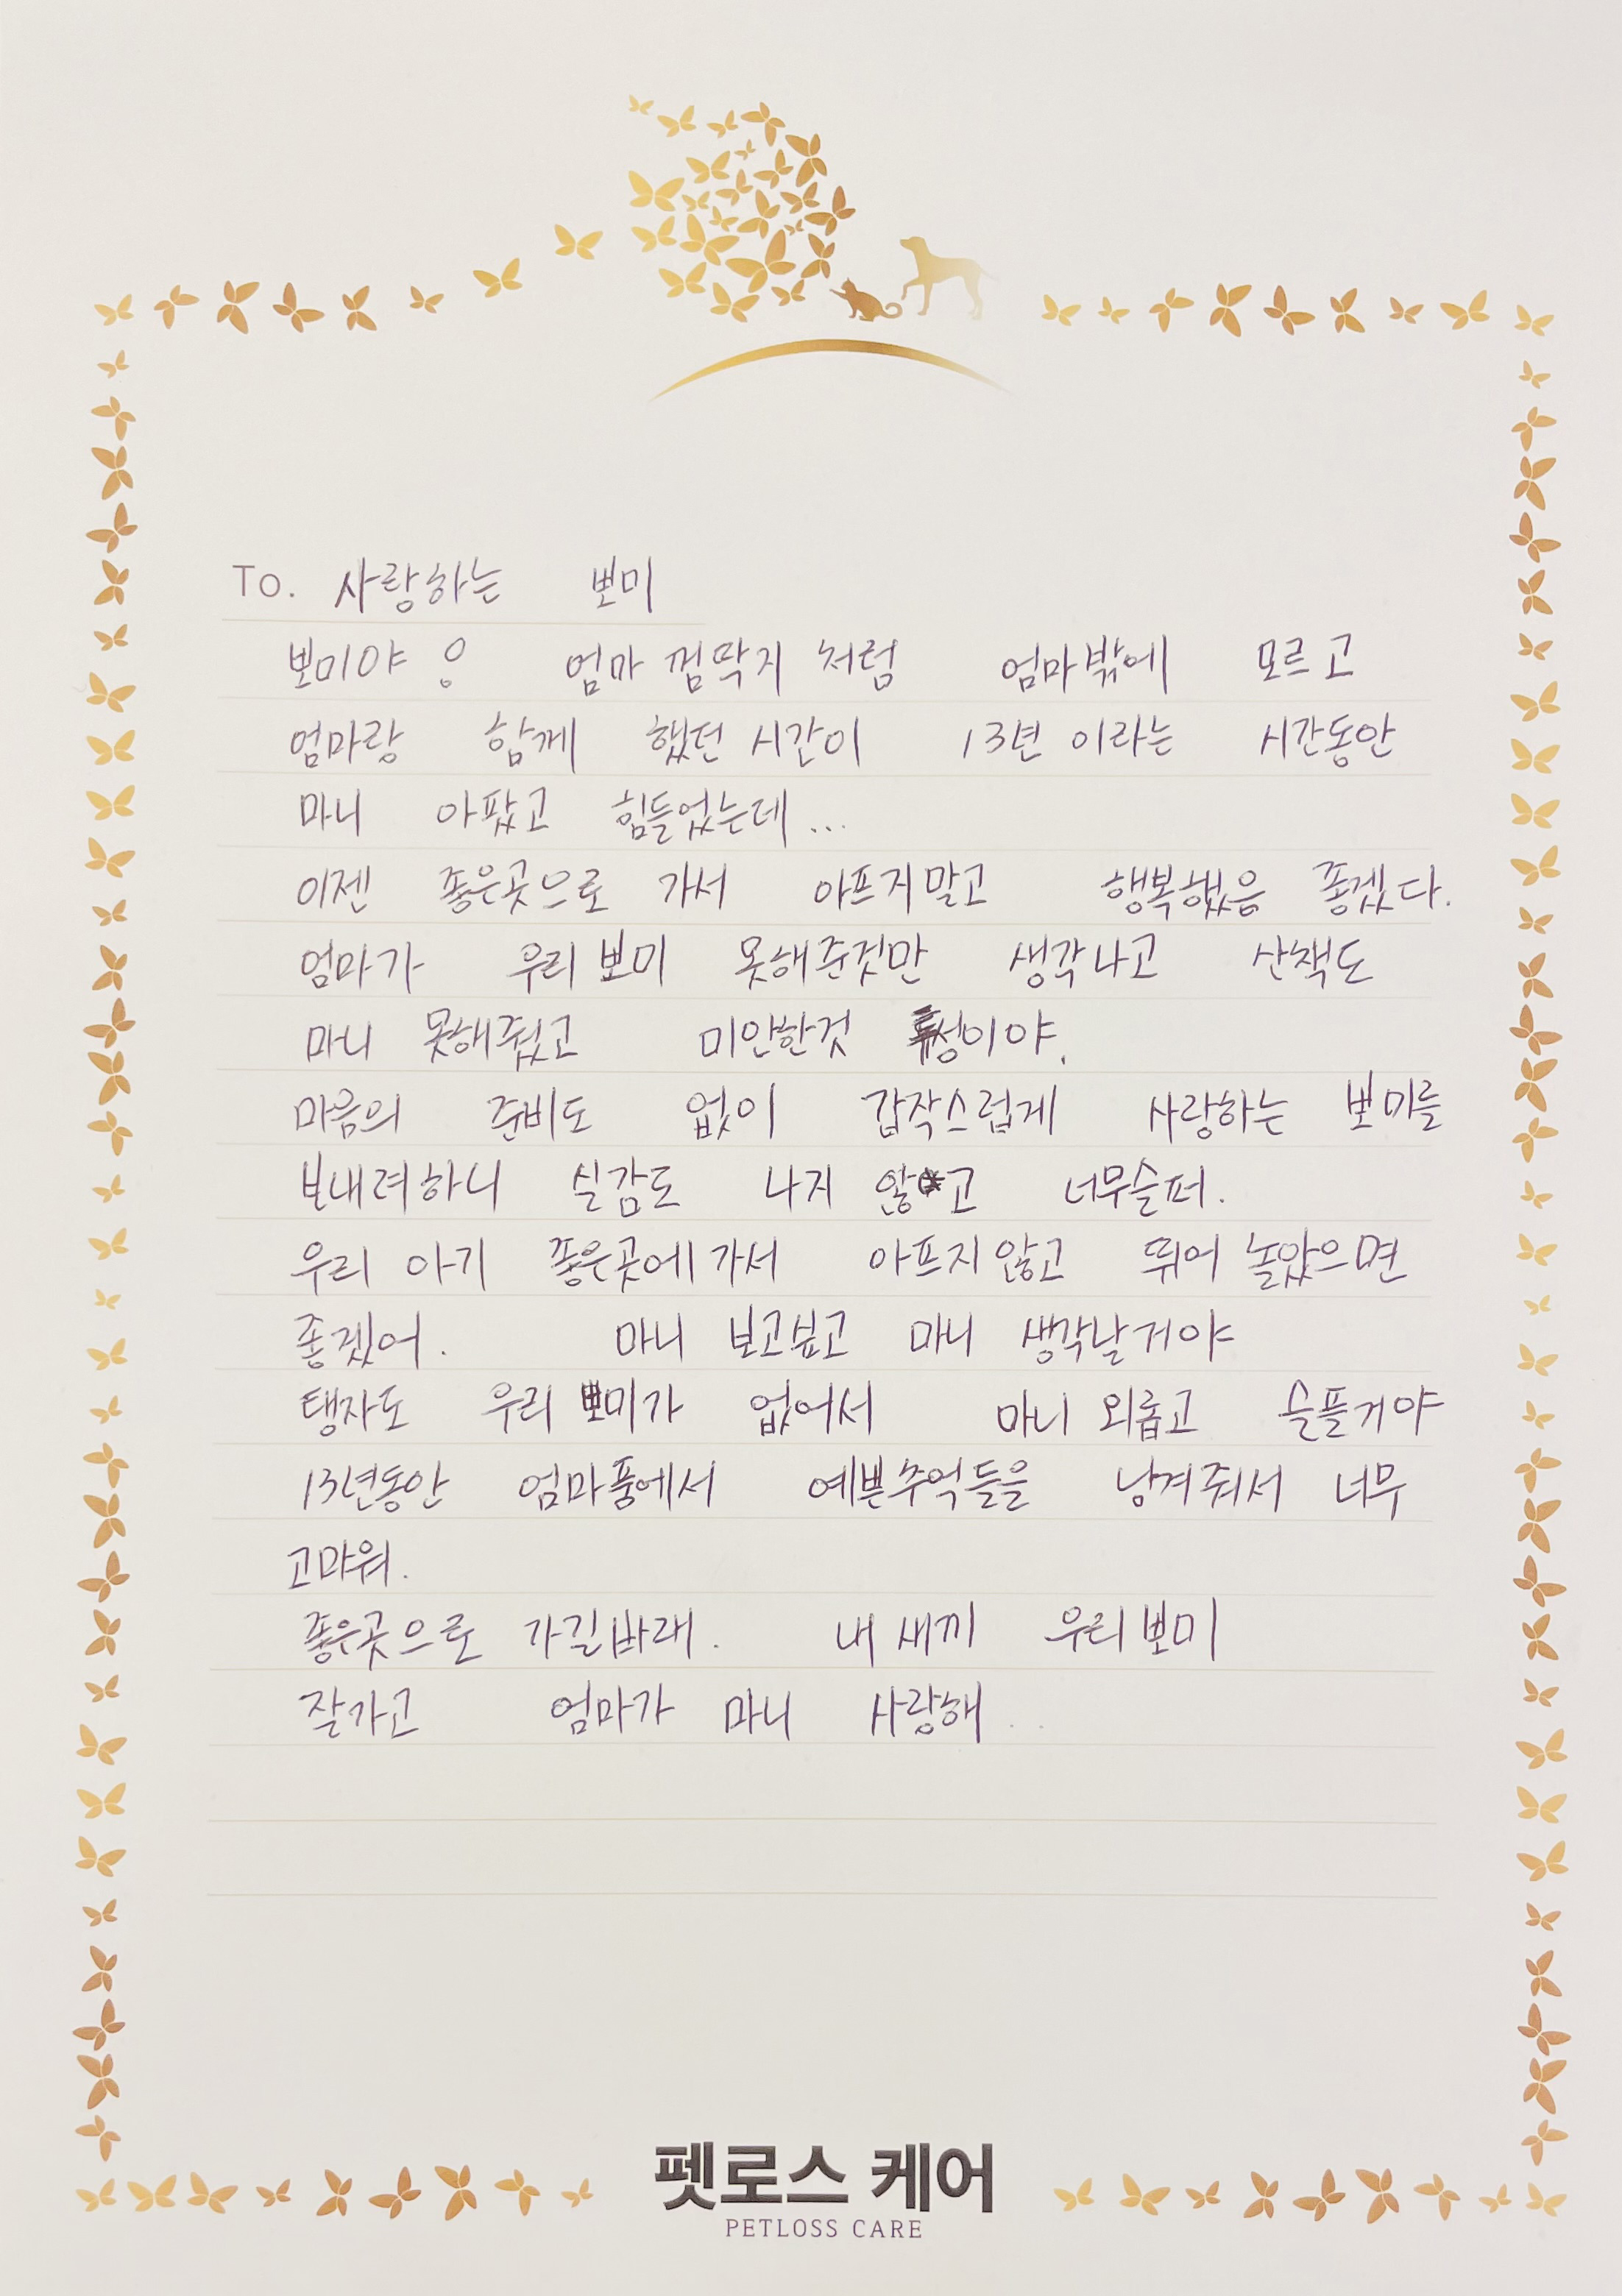 To. 사랑하는 뽀미
뽀미야 ! 엄마 껌딱지 처럼 엄마밖에 모르고
엄마랑 함께 했던 시간이 13년 이라는 시간동안
마니 아팠고 힘들었는데...
이젠 좋은곳으로 가서 아프지말고 행복했음 좋겠다.
엄마가 우리 뽀미 못해준것만 생각나고 산책도
마니 못해줬고 미안한것 투성이야.
마음의 준비도 없이 갑작스럽게 사랑하는 뽀미를
보내려하니 실감도 나지 않고 너무슬퍼.
우리 아기 좋은곳에 가서 아프지 않고 뛰어 놀았으면
좋겠어. 마니 보고싶고 마니 생각날거야
탱자도 우리 뽀미가 없어서 마니 외롭고 슬플거야
13년동안 엄마품에서 예쁜추억들을 남겨줘서 너무
고마워.
좋은곳으로 가길바래. 내 새끼 우리뽀미
잘가고 엄마가 마니 사랑해..
펫로스 케어
PETLOSS CARE